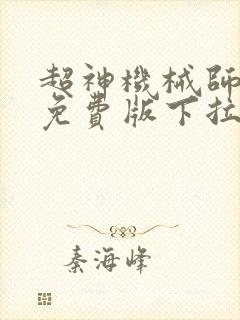 超神機械師
免費版下拉
秦海峰